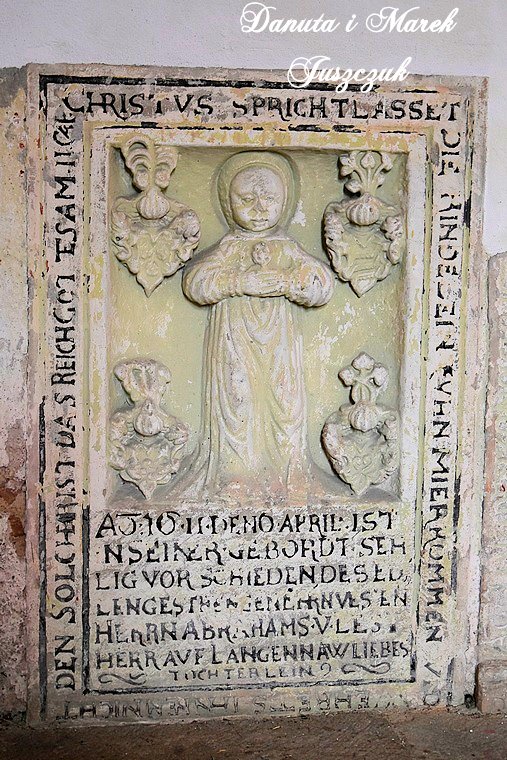 Danuta i Marek
Juszczuk
CHRISTVS SPRICHT LASSET
DIE KINDELEIN KVHN MIER KOMMEN
WEHRETS IHNEN NICHT
DEN SOLCHER IST DAS REICH GOTTES AM
AO: 16 11 DEN 0 APRIL: IST
IN SEINER GEBORDT SEH
LIG VOR SCHIEDEN DES ED
LEN GESTRENGEN EHRNVES EN
HERRN ABRAHAMS V LEST
HERR AVF LANGENNAW LIEBES
TÖCHTERLEIN